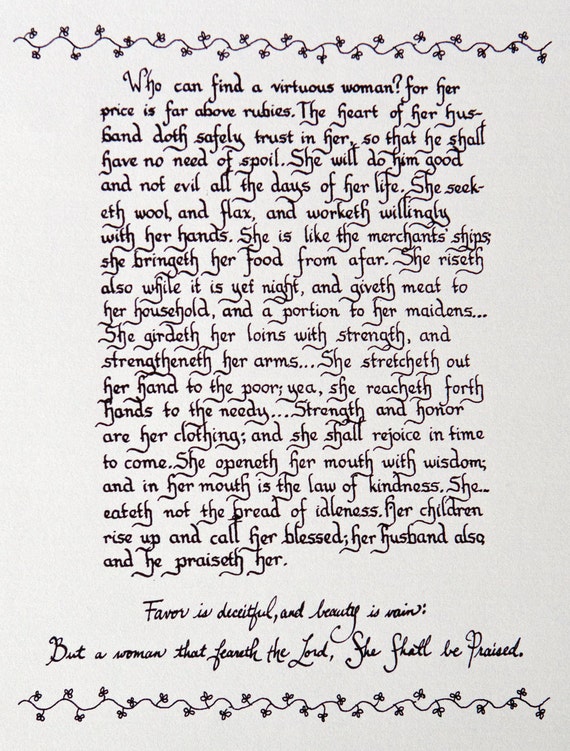 Who can find a virtuous woman? for her
price is far above rubies. The heart of her hus-
band doth safely trust in her, so that he shall
have no need of spoil. She will do him good
and not evil all the days of her life. She seek-
eth wool, and flax, and worketh willingly
with her hands. She is like the merchants' ships;
she bringeth her food from afar. She riseth
also while it is yet night, and giveth meat to
her household, and a portion to her maidens...
She girdeth her loins with strength, and
strengtheneth her arms... She stretcheth out
her hand to the poor; yea, she reacheth forth
hands to the needy.... Strength and honor
are her clothing; and she shall rejoice in time
to come. She openeth her mouth with wisdom;
and in her mouth is the law of kindness. She...
eateth not the bread of idleness. Her children
rise up and call her blessed; her husband also,
and he praiseth her.
Favor is deceitful, and beauty is vain:
But a woman that feareth the Lord, She Shall be Praised.